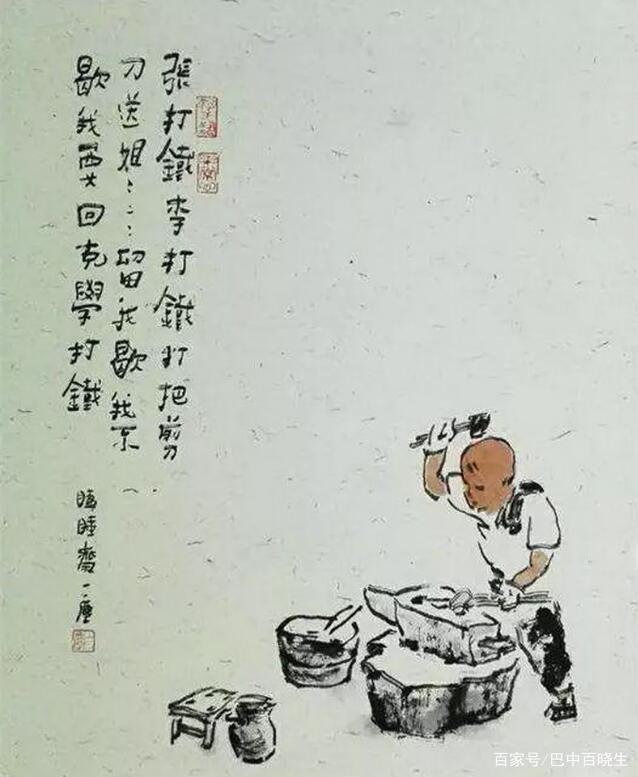 張打鐵李打鐵打把剪
刀送姐々々留我歇我不
歇我要回克學打鐵
睡齋一
百家号/巴中百晓生